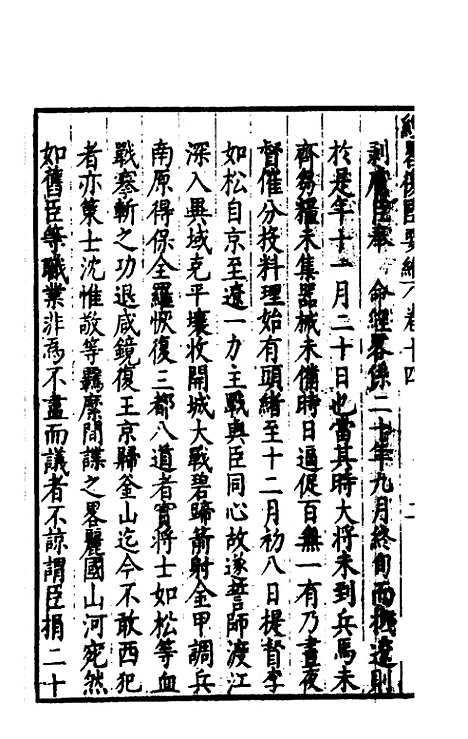 經畧復國要編 卷十四 二
剥膚臣奉 命經畧係二十年九月終旬而抵遼則
於是年十一月二十日也當其時大將未到兵馬未
齊芻糧未集器械未備時日逼促百無一有乃晝夜
督催分投料理始有頭緒至十二月初八日提督李
如松自京至遼一力主戰與臣同心故遂誓師渡江
深入異域克平壤收開城大戰碧蹄箭射金甲調兵
南原得保全羅恢復三都八道者實將士如松等血
戰塞斬之功退咸鏡復王京歸釜山迄今不敢西犯
者亦策士沈惟敬等羈縻間諜之畧麗國山河宛然
如舊臣等職業非爲不盡而議者不諒謂臣捐二十